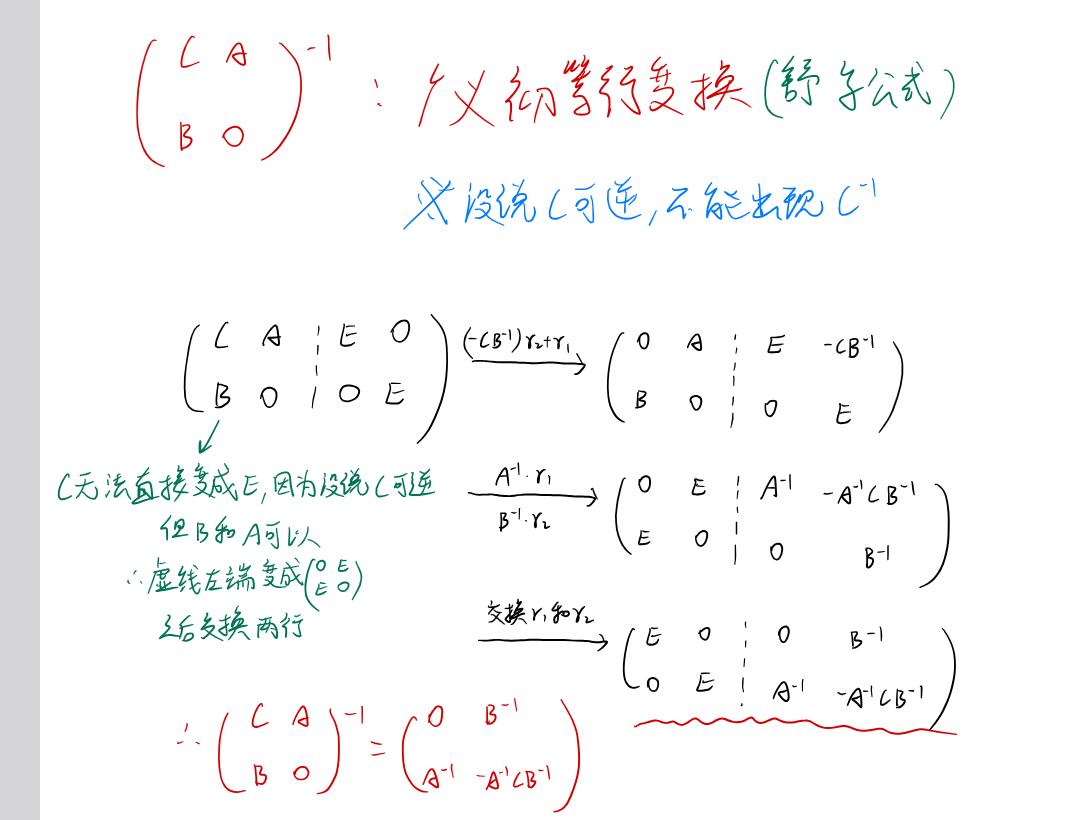 ( C A
B O )⁻¹ : 广义初等行变换(舒尔公式)
※没说C可逆,不能出现C⁻¹
( C A ¦ E O
B O ¦ O E ) (-CB⁻¹)r₂+r₁ → ( O A ¦ E -CB⁻¹
B O ¦ O E )
C无法直接变成E,因为没说C可逆
但B和A可以
∴虚线左端变成(O E
E O)
之后交换两行
A⁻¹·r₁
B⁻¹·r₂ → ( O E ¦ A⁻¹ -A⁻¹CB⁻¹
E O ¦ O B⁻¹ )
交换r₁和r₂ → ( E O ¦ O B⁻¹
O E ¦ A⁻¹ -A⁻¹CB⁻¹ )
∴ ( C A
B O )⁻¹ = ( O B⁻¹
A⁻¹ -A⁻¹CB⁻¹ )